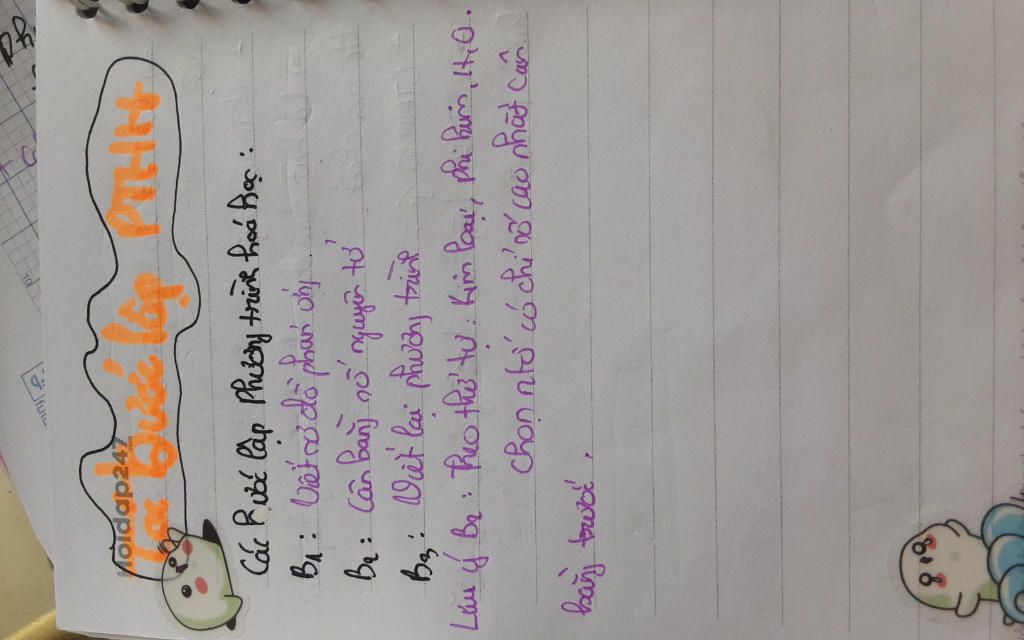 hoidap247.com
Các bước lập PTHH
Các bước lập Phương trình hoá học:
B1: Viết sơ đồ phản ứng
B2: Cân bằng số nguyên tử
B3: Viết lại phương trình
Lưu ý B2: Theo thứ tự: Kim loại, phi kim, H, O.
Chọn ntố có chỉ số cao nhất cân
bằng trước.